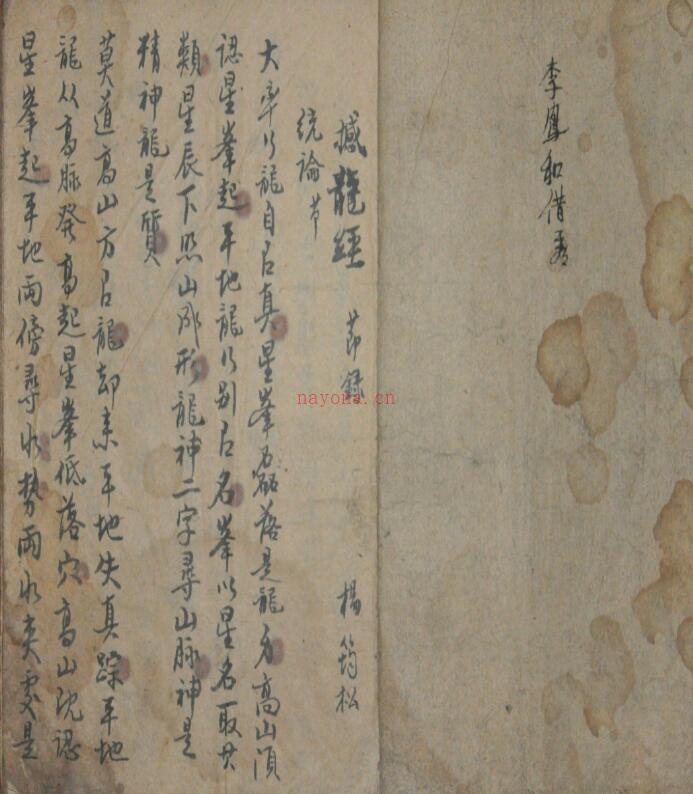 李鳳和借
撼龍經 節錄 楊筠松
統論節
大率行龍自有真星峯磊落是龍身高山須
認星峯起平地龍行别有名峯以星名取其
類星辰下照山成形龍神二字尋山脉神是
精神龍是質
莫道高山方有龍却来平地失真踪平地
龍从高脉發高起星峯低落穴高山既認
星峯起平地兩傍尋水勢兩水夾處是
nayona.cn